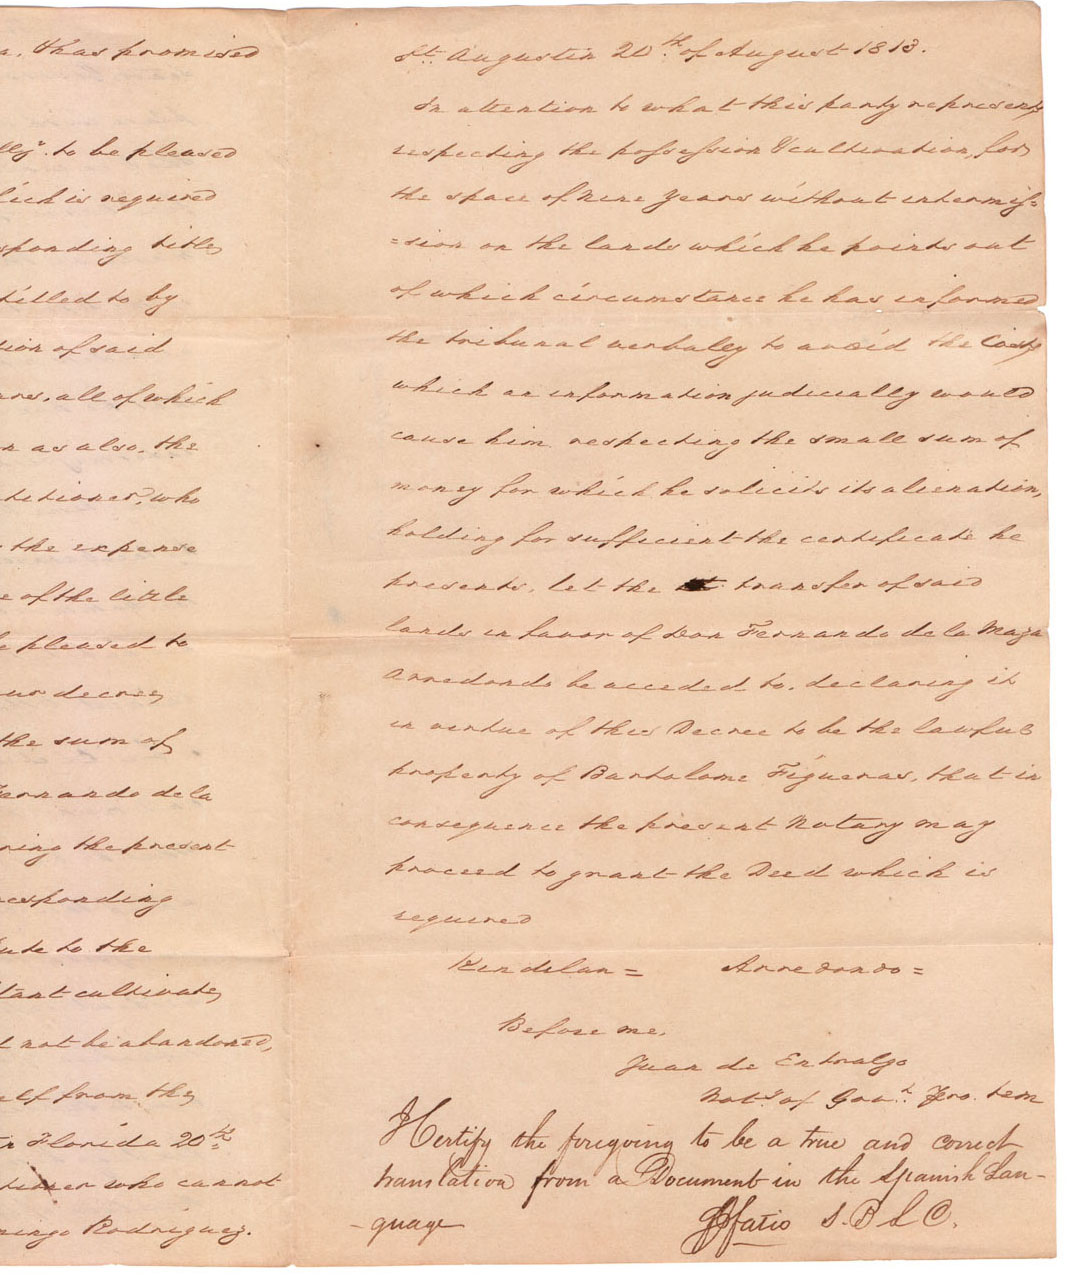 a, & has promised
lly. to be pleased
hich is required
sponding title,
tilled to by
tion of said
ares, all of which
n as also, the
titioner, who
the expense
e of the little
be pleased to
our decree,
the sum of
Fernando de la
ring the present
responding
ute to the
tant cultivate,
t not be abandoned,
elf from the
Florida 20th
titioner who cannot
mingo Rodriguez.
St. Augustin 20th of August 1813.
In attention to what this party represents
respecting the possession & cultivation, for
the space of nine years without intermis=
=sion on the lands which he points out
of which circumstance he has informed
the tribunal verbaley to avoid the Costs
which an information judicially would
cause him respecting the small sum of
money for which he solicits its alienation,
holding for sufficient the certificate he
presents, let the transfer of said
lands in favor of Don Fernando de la Maza
Arredondo be acceded to, declaring it
in virtue of this Decree to be the lawful
property of Bartolome Figueras, that in
consequence the present Notary may
proceed to grant the Deed which is
required
Kindelan = Arredondo =
Before me,
Juan de Entralgo
Noty. of Govt. Pro. tem
I Certify the foregoing to be a true and correct
translation from a Document in the Spanish Lan-
-guage
Fatio S.B.L.C.